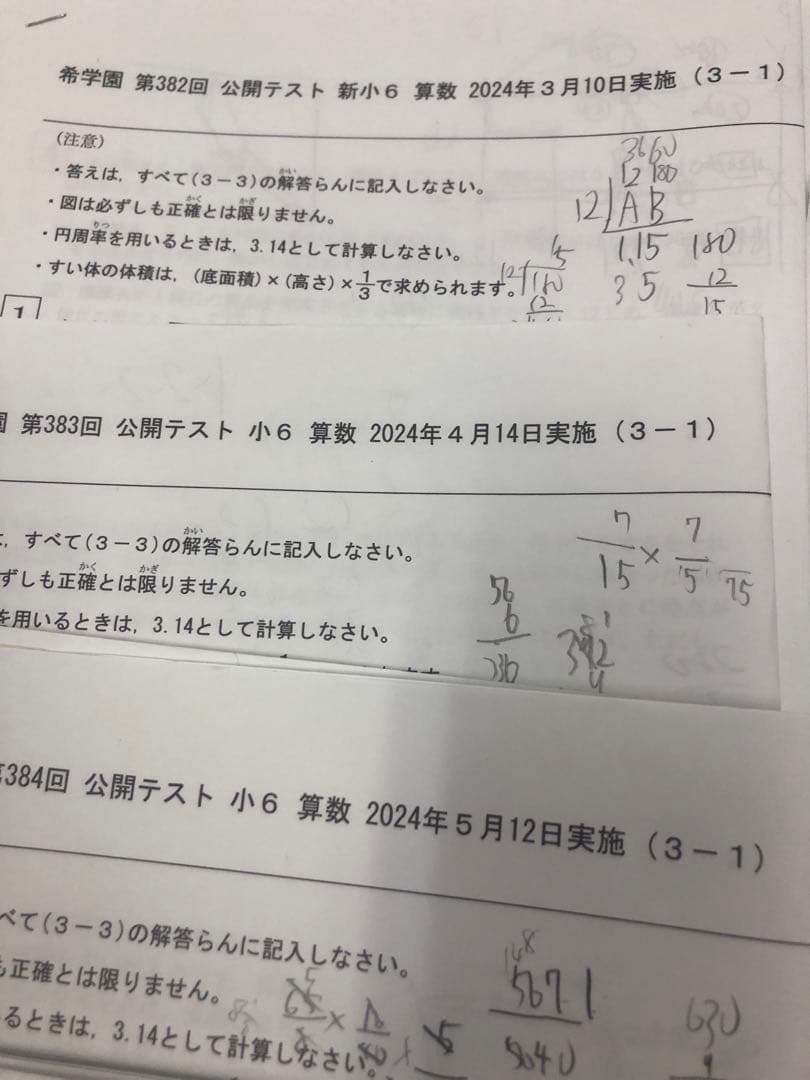 希学園 第382回 公開テスト 新小6 算数 2024年3月10日実施 (3-1)
(注意)
・答えは, すべて(3-3)の解答らんに記入しなさい。
・図は必ずしも正確とは限りません。
・円周率を用いるときは, 3.14として計算しなさい。
・すい体の体積は, (底面積)×(高さ)×1/3で求められます。
3660
12 180
12 A B
1,15 180
3 5 12
15
15
12 180
12
1
第383回 公開テスト 小6 算数 2024年4月14日実施 (3-1)
すべて(3-3)の解答らんに記入しなさい。
ずしも正確とは限りません。
を用いるときは, 3.14として計算しなさい。
7/15 × 7/5 75
56
6
336
第384回 公開テスト 小6 算数 2024年5月12日実施 (3-1)
べて(3-3)の解答らんに記入しなさい。
も正確とは限りません。
るときは, 3.14として計算しなさい。
148
5671
5040
630